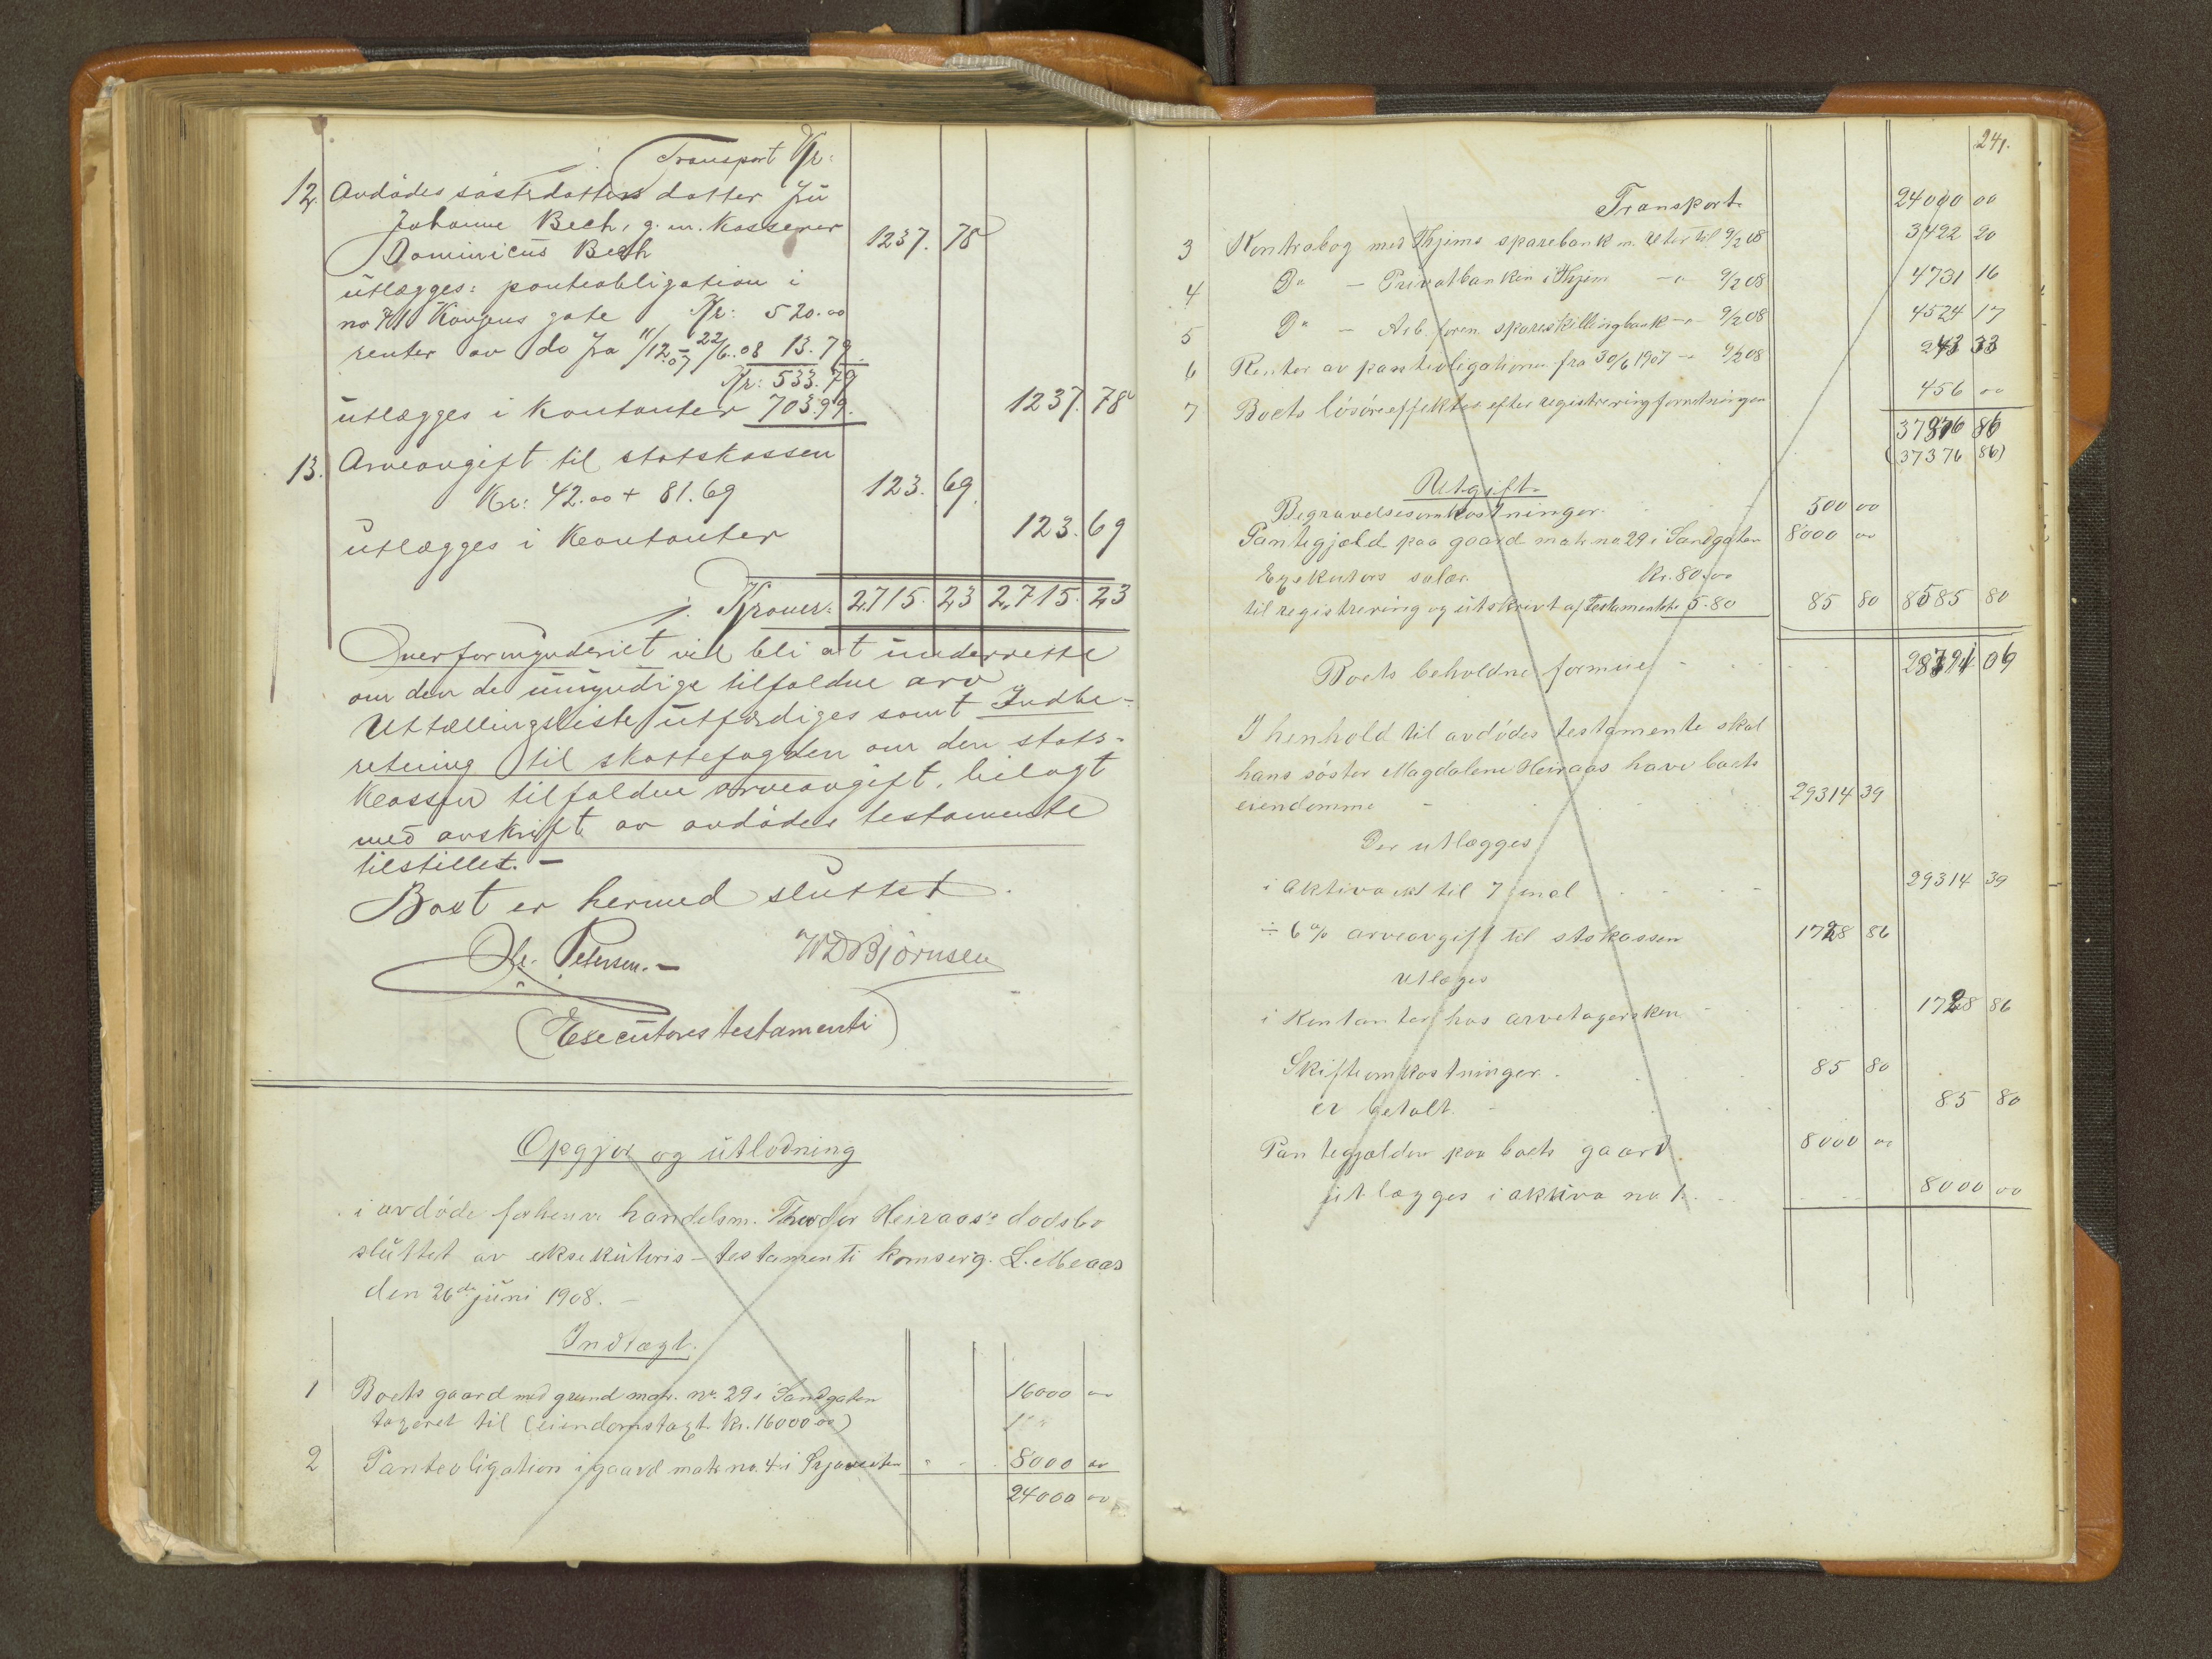 Transport Kr:
12. Avdødes søsterdatters datter fru
Johanne Bech, g. m. kasserer
Dominicus Bech 1237. 78
utlægges: panteobligation i
no 71 Kongens gate Kr: 520.00
renter av do fra 11/12.07 – 22/6.08 13.79.
Kr: 533.79
utlægges i kontanter 703.99. 1237. 78
13. Arveavgift til statskassen
Kr: 42.00 + 81.69 123. 69.
utlægges i Kontanter 123. 69
Kroner: 2,715. 23 2,715. 23
Overformynderiet vil bli at underrette
om den de umyndige tilfaldne arv
Uttællingsliste utfærdiges samt Indbe-
retning til skattefogden om den stats-
kassen tilfaldne arveavgift, bilagt
med avskrift av avdødes testamente
tilstillet. –
Boet er hermed sluttet.
Petersen. – W D Bjørnsen
(Executores testamenti)
Opgjør og utlodning
i avdøde forhenv. handelsm. Theodor Heiraas's dødsbo
sluttet av eksekutoris – testamenti komserg. L. Meaas
den 26de juni 1908. –
Indtægt.
1 Boets gaard med grund matr. no. 29 i Sandgaten
taxeret til (eiendomstaxt kr. 16000.00) 16000 00
2 Panteobligation i gaard matr no. 4 i 8000 00
24000 00
241.
Transport 24000 00
3 Kontrabog med Thjems sparebank m. renter til 9/2 08 3422 20
4 Do – Privatbanken i Thjem –"– 9/2 08 4731 16
5 Do – Arb. foren. spareskillingsbank –"– 9/2 08 4524 17
6 Renter av panteobligationen fra 30/6 1907 –"– 9/2 08 243 33
7 Boets løsøreeffekter efter registreringsforretningen 456 00
37376 86
(37376 86)
Utgift.
Begravelsesomkostninger. 500 00
Pantegjæld paa gaard matr no 29 i Sandgaten 8000 00
Exekutors salær. Kr. 80.00
til registrering og utskrivt af Testamentet 5.80 85 80 8585 80
Boets beholdne formue 28791 06
I henhold til avdødes testamente skal
hans søster Magdalene Heiraas have boets
eiendomme 29314 39
Der utlægges
i aktiva 1 til 7 inkl 29314 39
÷ 6 % arveavgift til stskassen 1728 86
Utlæges
i Kontanter hos arvetagersken 1728 86
Skifteomkostninger. 85 80
er betalt 85 80
Pantegjælden paa boets gaard 8000 00
utlægges i aktiva no 1. 8000 00